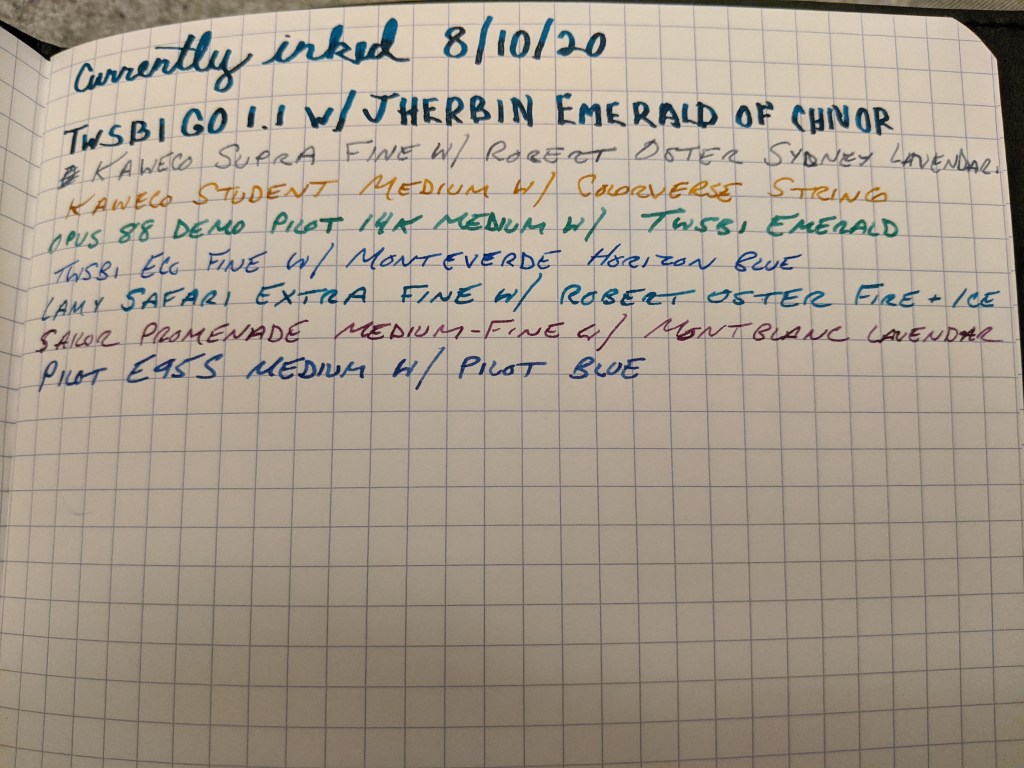 Currently inked 8/10/20
TWSBI GO 1.1 W/ JHERBIN EMERALD OF CHIVOR
KAWECO SUPRA FINE W/ ROBERT OSTER SYDNEY LAVENDAR
KAWECO STUDENT MEDIUM W/ COLORVERSE STRING
OPUS 88 DEMO PILOT 14K MEDIUM W/ TWSBI EMERALD
TWSBI ECO FINE W/ MONTEVERDE HORIZON BLUE
LAMY SAFARI EXTRA FINE W/ ROBERT OSTER FIRE + ICE
SAILOR PROMENADE MEDIUM-FINE W/ MONTBLANC LAVENDAR
PILOT E95S MEDIUM W/ PILOT BLUE